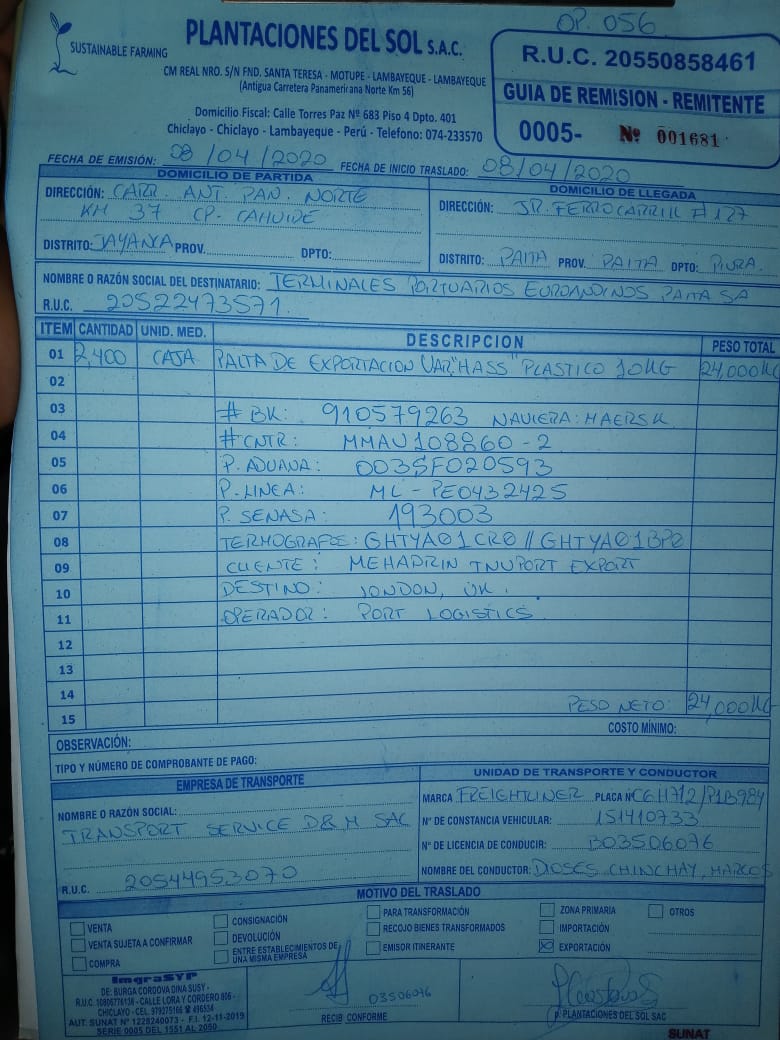 OP. 056
SUSTAINABLE FARMING
PLANTACIONES DEL SOL S.A.C.
CM REAL NRO. S/N FND. SANTA TERESA - MOTUPE - LAMBAYEQUE - LAMBAYEQUE
(Antigua Carretera Panamericana Norte Km 56)
Domicilio Fiscal: Calle Torres Paz Nº 683 Piso 4 Dpto. 401
Chiclayo - Chiclayo - Lambayeque - Perú - Telefono: 074-233570
R.U.C. 20550858461
GUIA DE REMISION - REMITENTE
0005- Nº 001681
FECHA DE EMISIÓN: 08/04/2020 FECHA DE INICIO TRASLADO: 08/04/2020
DOMICILIO DE PARTIDA
DIRECCIÓN: CARR. ANT. PAN. NORTE
KM 37 CP. CAHUIDE
DISTRITO: JAYANCA PROV. DPTO:
DOMICILIO DE LLEGADA
DIRECCIÓN: JR. FERROCARRIL # 127
DISTRITO: PAITA PROV. PAITA DPTO: PIURA
NOMBRE O RAZÓN SOCIAL DEL DESTINATARIO: TERMINALES PORTUARIOS EUROANDINOS PAITA SA
R.U.C. 20522473571
ITEM CANTIDAD UNID. MED. DESCRIPCION PESO TOTAL
01 2,400 CAJA PALTA DE EXPORTACION VAR. "HASS" PLASTICO 10KG 24,000KG
02
03 # BK: 910579263 NAVIERA: MAERSK
04 # CNTR: MMAU108860-2
05 P. ADUANA: 0035F020593
06 P. LINEA: ML-PE0432425
07 P. SENASA: 193003
08 TERMOGRAFOS: GHTYA01CR0 // GHTYA01BP0
09 CLIENTE: MEHADRIN TNUPORT EXPORT
10 DESTINO: LONDON, UK.
11 OPERADOR: PORT LOGISTICS
12
13
14
15 PESO NETO: 24,000KG
OBSERVACIÓN: COSTO MÍNIMO:
TIPO Y NÚMERO DE COMPROBANTE DE PAGO:
EMPRESA DE TRANSPORTE
NOMBRE O RAZÓN SOCIAL:
TRANSPORT SERVICE D&M SAC
R.U.C. 20544953070
UNIDAD DE TRANSPORTE Y CONDUCTOR
MARCA FREIGHTLINER PLACA Nº C6H712/P1B984
Nº DE CONSTANCIA VEHICULAR: 151410733
Nº DE LICENCIA DE CONDUCIR: B03506076
NOMBRE DEL CONDUCTOR: DIOSES CHINCHAY, MARCOS
MOTIVO DEL TRASLADO
VENTA
VENTA SUJETA A CONFIRMAR
COMPRA
CONSIGNACIÓN
DEVOLUCIÓN
ENTRE ESTABLECIMIENTOS DE
UNA MISMA EMPRESA
PARA TRANSFORMACIÓN
RECOJO BIENES TRANSFORMADOS
EMISOR ITINERANTE
ZONA PRIMARIA
IMPORTACIÓN
EXPORTACIÓN
OTROS
ImgraSYP
DE: BURGA CORDOVA DINA SUSY -
R.U.C. 10806776138 - CALLE LORA Y CORDERO 806 -
CHICLAYO - CEL. 979275166 ☎ 496554
AUT. SUNAT Nº 1228240073 - F.I. 12-11-2019
SERIE 0005 DEL 1551 AL 2050
03506076
RECIBI CONFORME
p. PLANTACIONES DEL SOL SAC
SUNAT